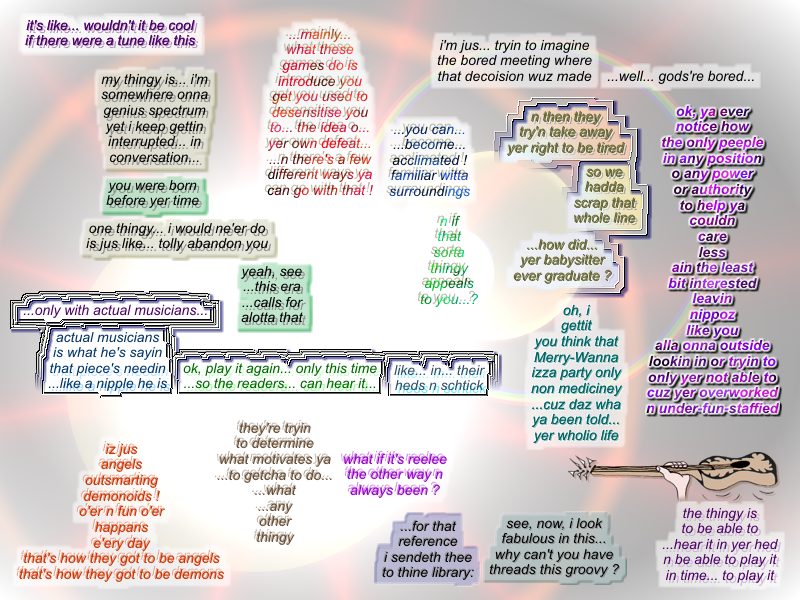 it's like... wouldn't it be cool
if there were a tune like this
my thingy is... i'm
somewhere onna
genius spectrum
yet i keep gettin
interrupted... in
conversation...
you were born
before yer time
one thingy... i would ne'er do
is jus like... tolly abandon you
...mainly...
what these
games do is
introduce you
get you used to
desensitise you
to... the idea o...
yer own defeat...
...n there's a few
different ways ya
can go with that !
i'm jus... tryin to imagine
the bored meeting where
that decoision wuz made
...well... gods're bored...
...you can...
...become...
acclimated !
familiar witta
surroundings
n then they
try'n take away
yer right to be tired
so we
hadda
scrap that
whole line
...how did...
yer babysitter
ever graduate ?
ok, ya ever
notice how
the only peeple
in any position
o any power
or authority
to help ya
couldn
care
less
ain the least
bit interested
leavin
nippoz
like you
alla onna outside
lookin in or tryin to
only yer not able to
cuz yer overworked
n under-fun-staffied
n if
that
sorta
thingy
appeals
to you...?
yeah, see
...this era
...calls for
alotta that
...only with actual musicians...
actual musicians
is what he's sayin
that piece's needin
...like a nipple he is
ok, play it again... only this time
...so the readers... can hear it...
like... in... their
heds n schtick
oh, i
gettit
you think that
Merry-Wanna
izza party only
non mediciney
...cuz daz wha
ya been told...
yer wholio life
iz jus
angels
outsmarting
demonoids !
o'er n fun o'er
happans
e'ery day
that's how they got to be angels
that's how they got to be demons
they're tryin
to determine
what motivates ya
...to getcha to do...
...what
...any
other
thingy
what if it's reelee
the other way n
always been ?
...for that
reference
i sendeth thee
to thine library:
see, now, i look
fabulous in this...
why can't you have
threads this groovy ?
the thingy is
to be able to
...hear it in yer hed
n be able to play it
in time... to play it